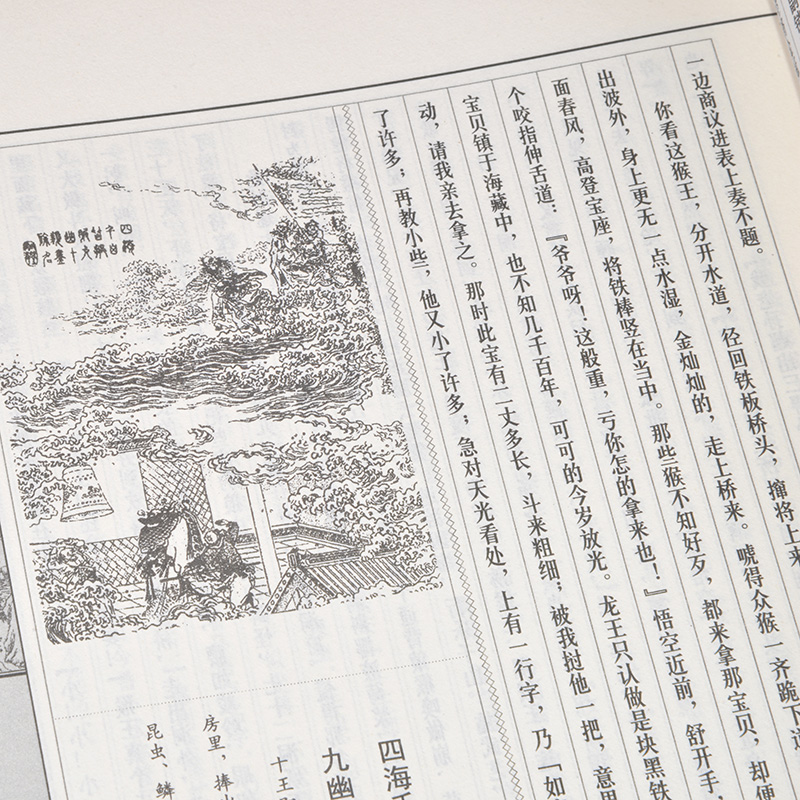 一边商议进表上奏不题。
你看这猴王，分开水道，径回铁板桥头，撺将上来
出波外，身上更无一点水湿，金灿灿的，走上桥来。唬得众猴一齐跪下道
面春风，高登宝座，将铁棒竖在当中。那些猴不知好歹，都来拿那宝贝，却便
个咬指伸舌道：『爷爷呀！这般重，亏你怎的拿来也！』悟空近前，舒开手，
宝贝镇于海藏中，也不知几千百年，可可的今岁放光。龙王只认做是块黑铁
动，请我亲去拿之。那时此宝有二丈多长，斗来粗细；被我挝他一把，意思
了许多；再教小些，他又小了许多；急对天光看处，上有一行字，乃『如
四海
九幽
十王
房里，捧
昆虫、鳞